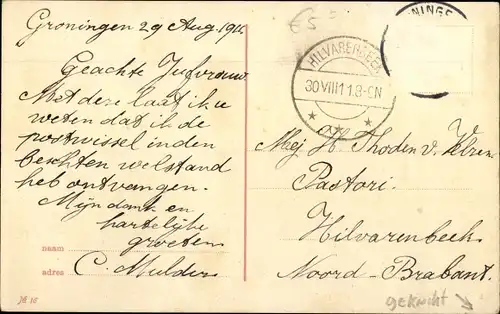 Groningen 29 Aug. 1911
Geachte Jufvrouw
Met deze laat ik u
weten dat ik de
postwissel in den
besten welstand
heb ontvangen.
Mijn dank en
hartelijke
groeten
naam
adres C. Mulder
№ 16
£5 =
HILVARENBEEK
30 VIII 11 1.8-CN
NINGE
Mej H. Thoden v. Velzen
Pastori.
Hilvarenbeek
Noord-Brabant.
geknicht